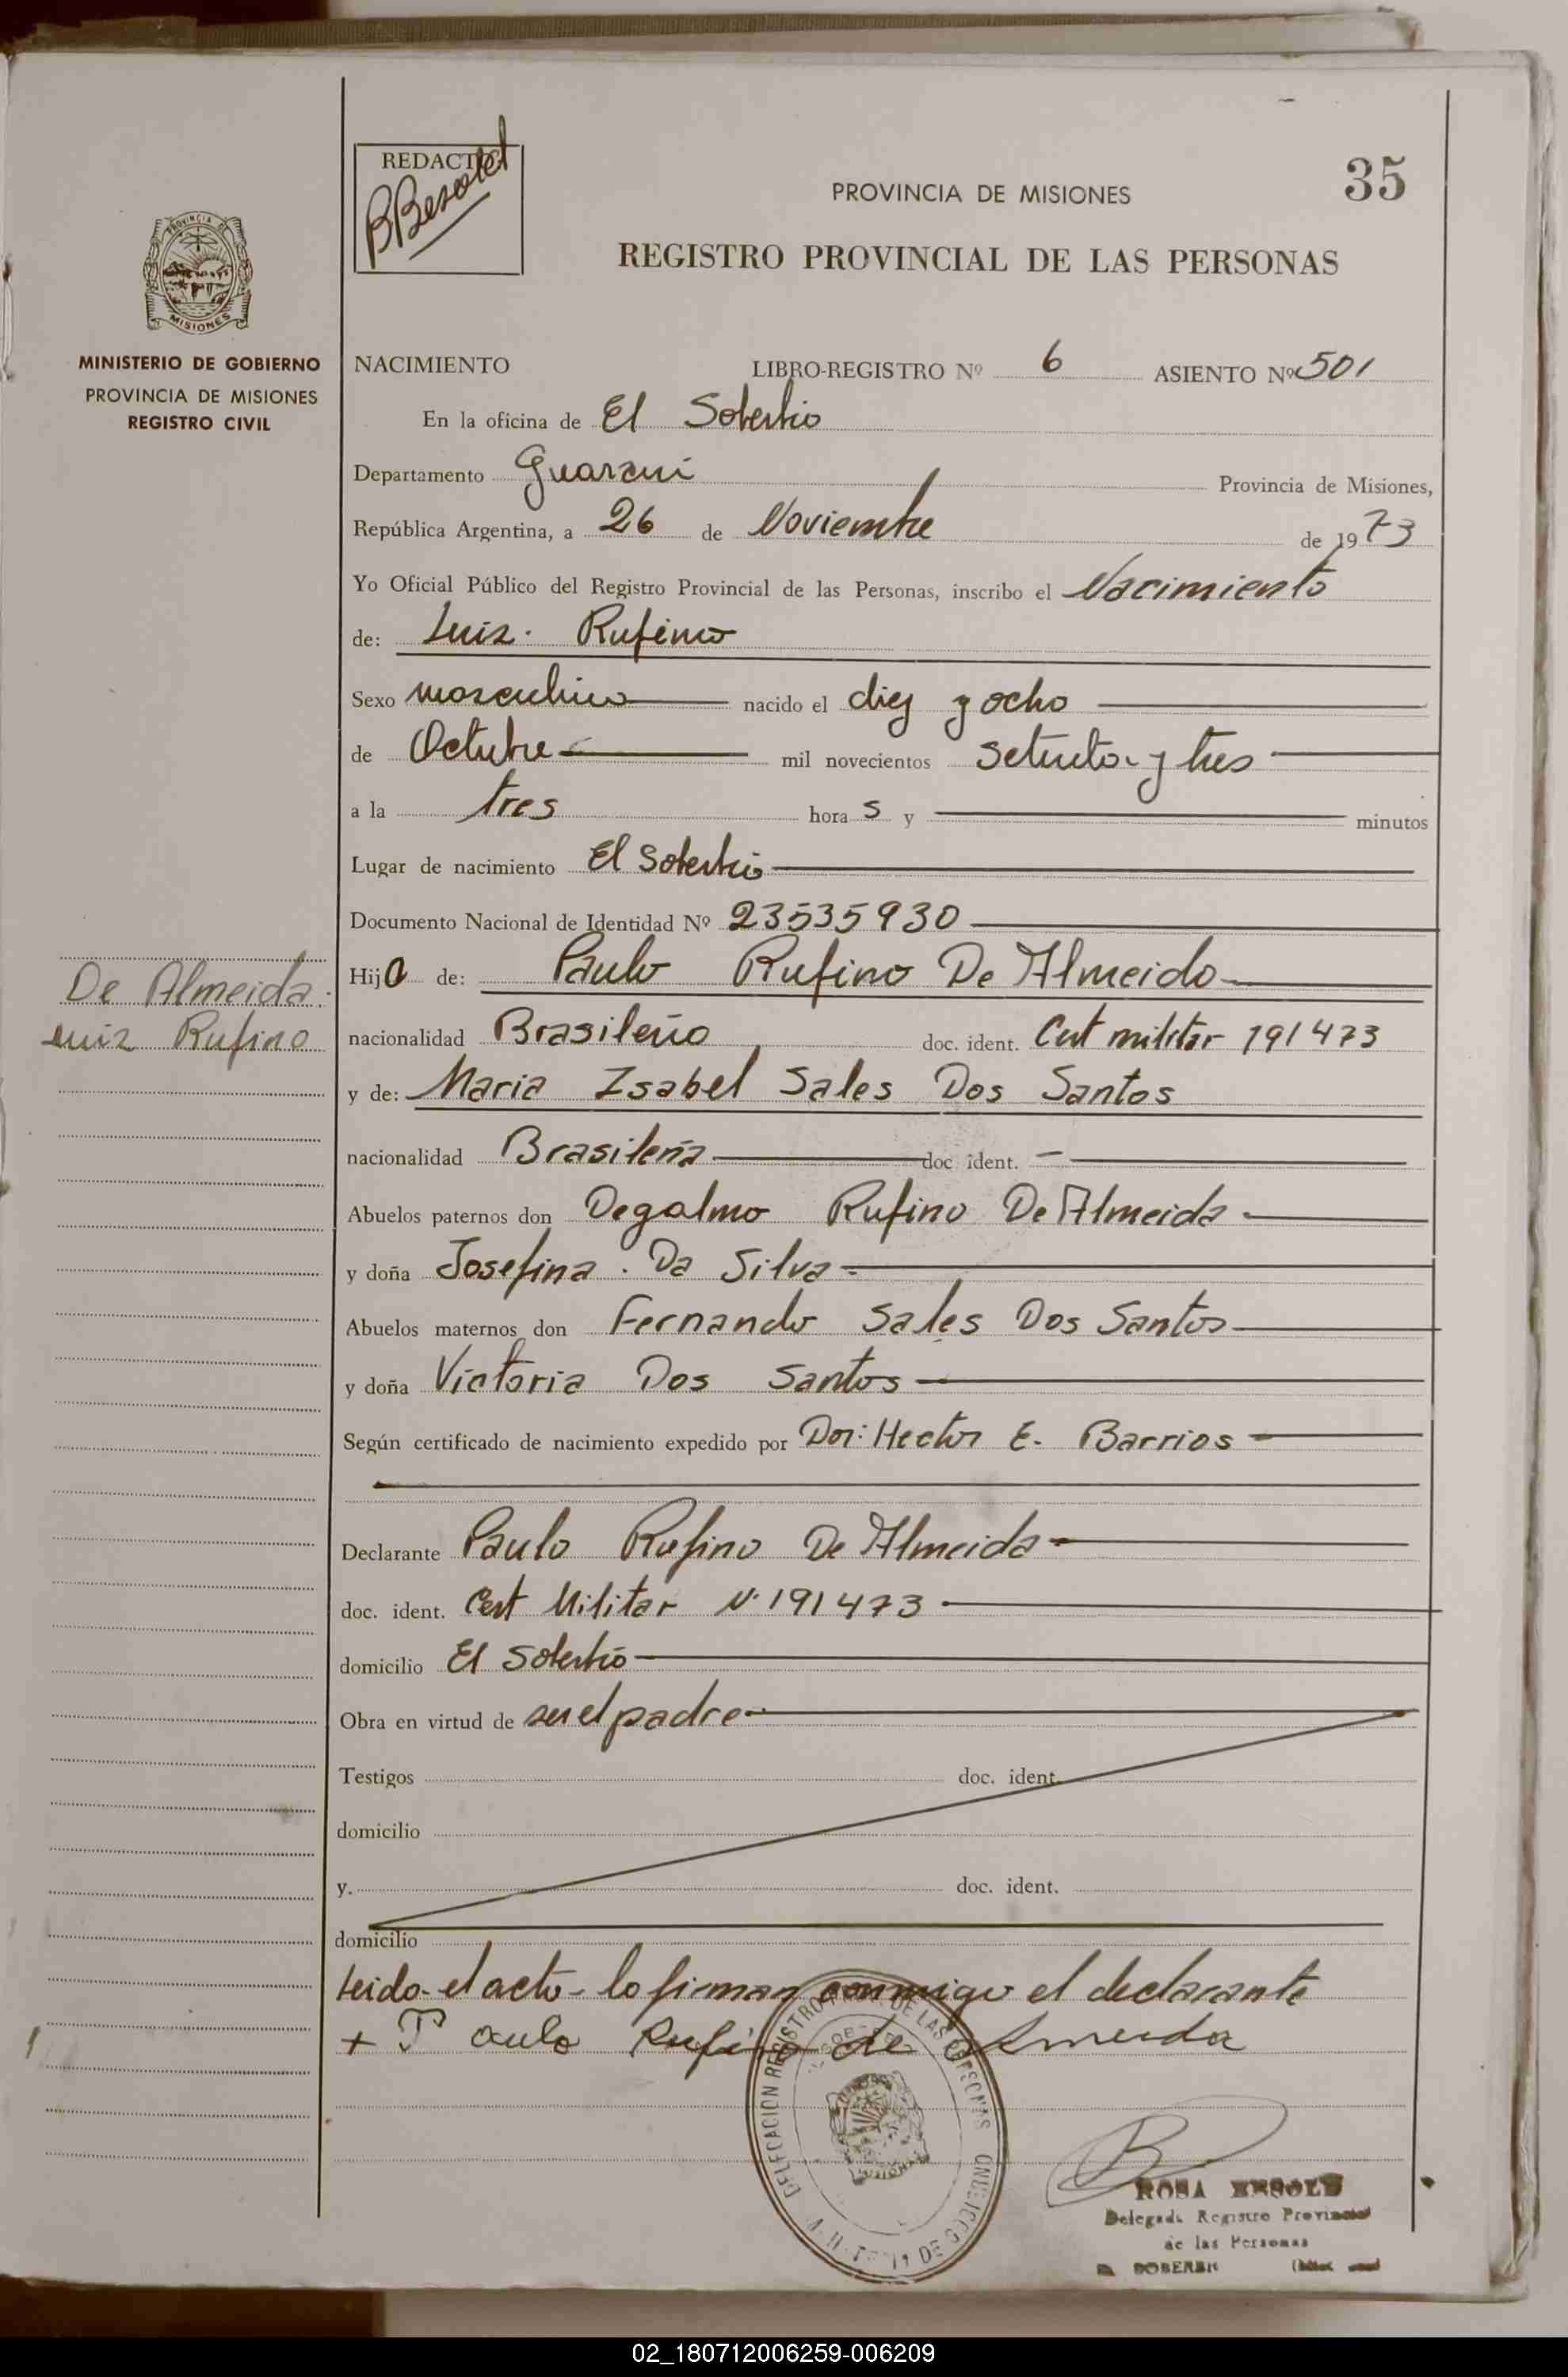 REDACTÓ
BBesold
35
PROVINCIA DE MISIONES
REGISTRO PROVINCIAL DE LAS PERSONAS
PROVINCIA DE
MISIONES
MINISTERIO DE GOBIERNO
PROVINCIA DE MISIONES
REGISTRO CIVIL
NACIMIENTO LIBRO-REGISTRO Nº 6 ASIENTO Nº 501
En la oficina de El Soberbio
Departamento Guarani Provincia de Misiones,
República Argentina, a 26 de Noviembre de 1973
Yo Oficial Público del Registro Provincial de las Personas, inscribo el Nacimiento
de: Luiz. Rufino
Sexo masculino nacido el diez y ocho
de Octubre mil novecientos setenta y tres
a la tres hora s y minutos
Lugar de nacimiento El Soberbio
Documento Nacional de Identidad Nº 23535930
De Almeida.
Luiz Rufino
Hijo de: Paulo Rufino De Almeida
nacionalidad Brasileño doc. ident. Cert militar 191473
y de: Maria Isabel Sales Dos Santos
nacionalidad Brasileña doc. ident. —
Abuelos paternos don Degalmo Rufino De Almeida
y doña Josefina. Da Silva
Abuelos maternos don Fernando Sales Dos Santos
y doña Victoria Dos Santos
Según certificado de nacimiento expedido por Dor: Hector E. Barrios
Declarante Paulo Rufino De Almeida
doc. ident. Cert Militar N. 191473
domicilio El Soberbio
Obra en virtud de ser el padre
Testigos doc. ident.
domicilio
y. doc. ident.
domicilio
Leido el acto lo firman conmigo el declarante
+ Paulo Rufino de Almeida
DELEGACION REGISTRO PROV. DE LAS PERSONAS
MISIONES
ROSA BESOLD
Delegada Registro Provincial
de las Personas
02_180712006259-006209